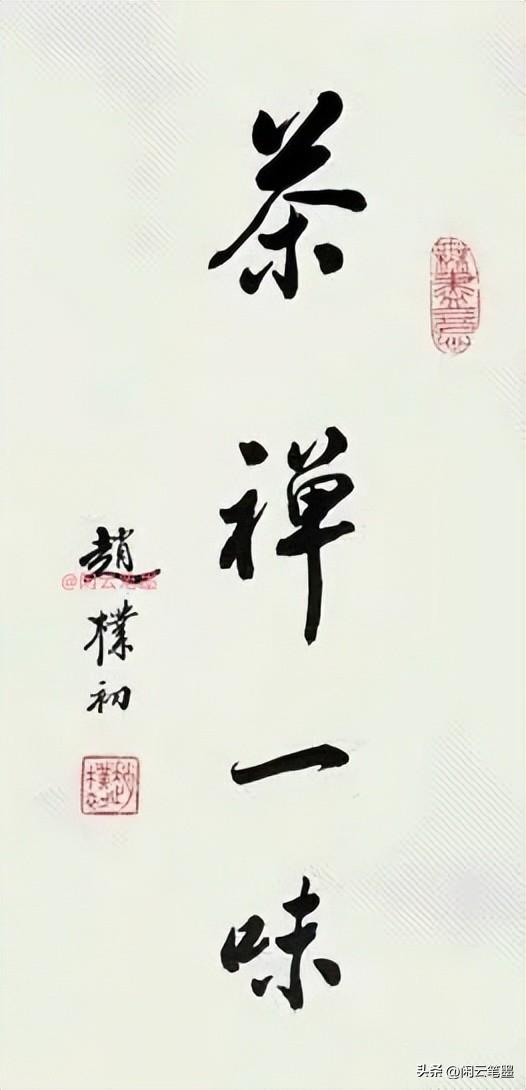 茶禅一味
趙樸初
@闲云笔墨
头条 @闲云笔墨